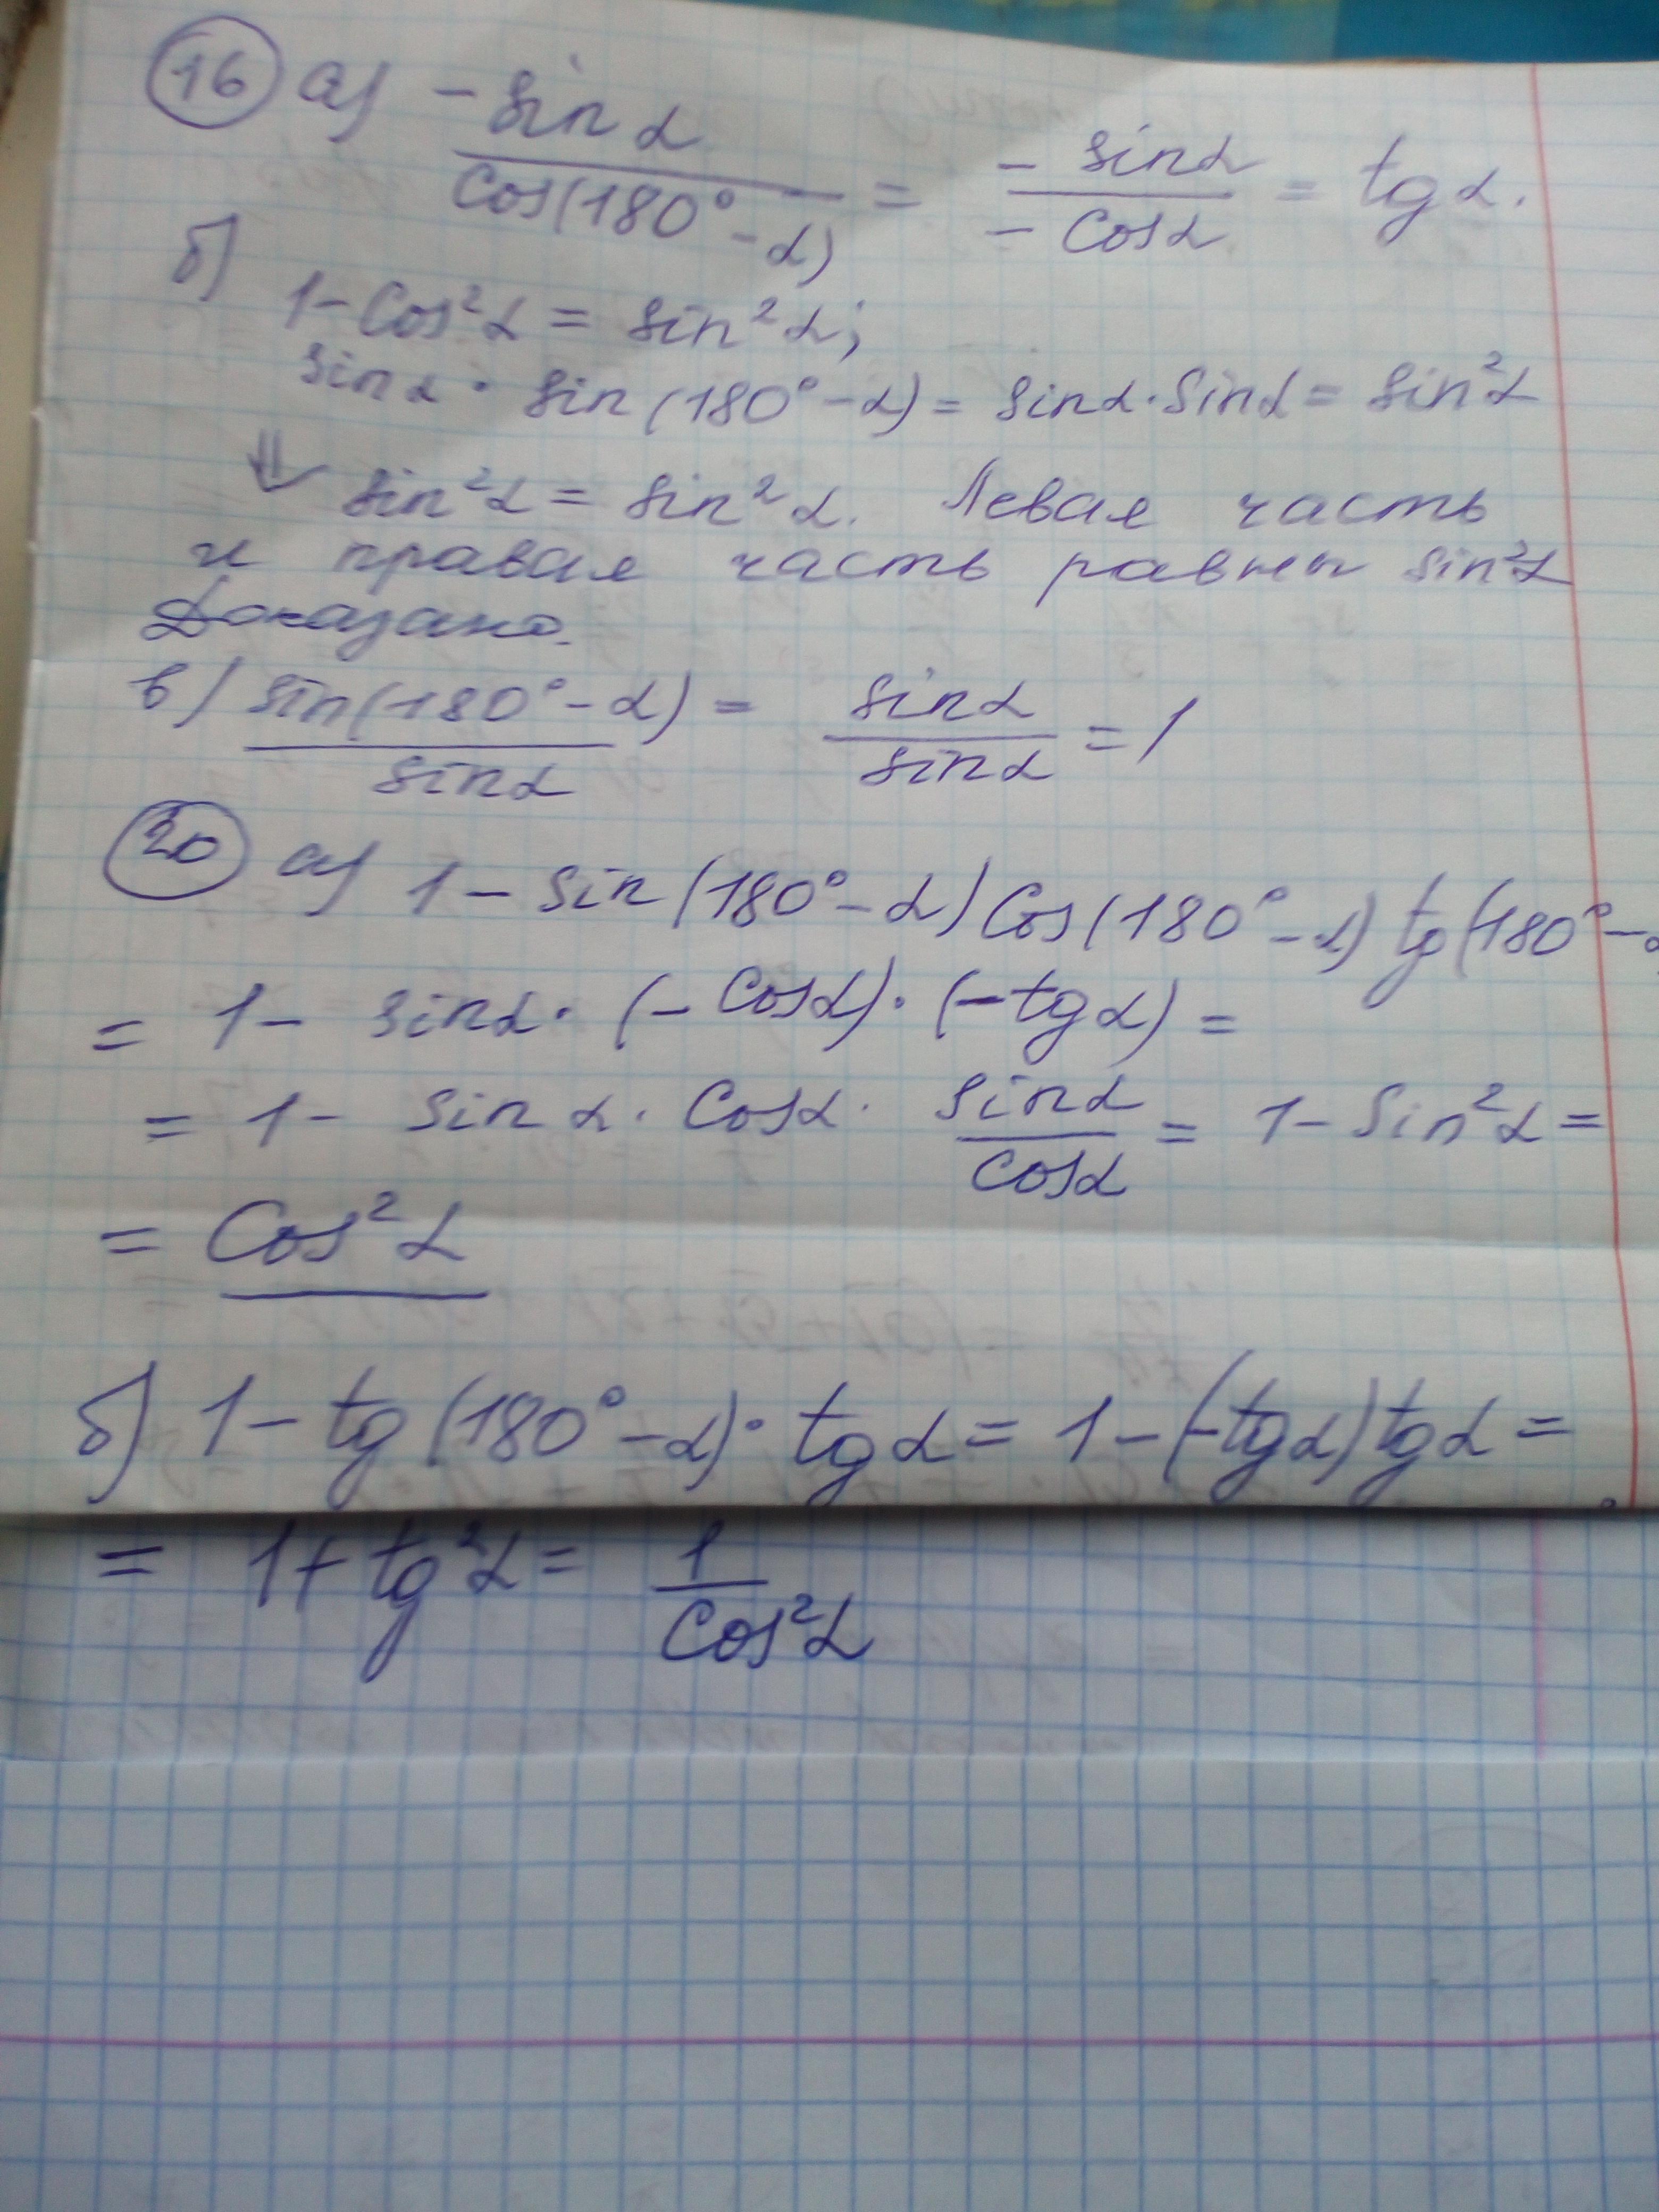 16 а) -sin α / cos(180°-α) = -sin α / -cos α = tg α.
б) 1-cos²α = sin²α;
sin α · sin(180°-α) = sin α · sin α = sin²α
⇓ sin²α = sin²α. Левая часть
и правая часть равны sin²α
Доказано.
в) sin(180°-α) / sin α = sin α / sin α = 1
20 а) 1 - sin(180°-α) cos(180°-α) tg(180°-α
= 1 - sin α · (-cos α) · (-tg α) =
= 1 - sin α · cos α · sin α / cos α = 1 - sin²α =
= cos²α
б) 1 - tg(180°-α) · tg α = 1 - (-tg α) tg α =
= 1 + tg²α = 1 / cos²α